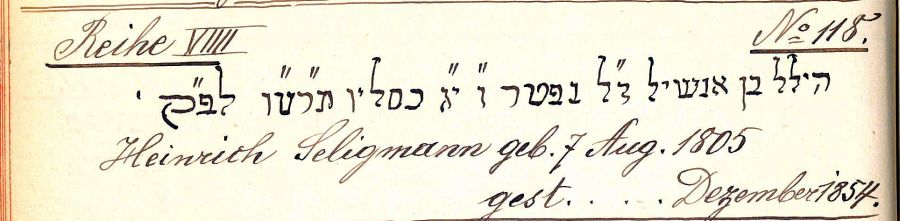 Reihe VIIII No 118.
הילל בן אנשיל ז״ל נפטר ו״ י״ג כסליו תרט״ו לפ״ק
Heinrich Seligmann geb. 7 Aug. 1805
gest. . . . . Dezember 1854.